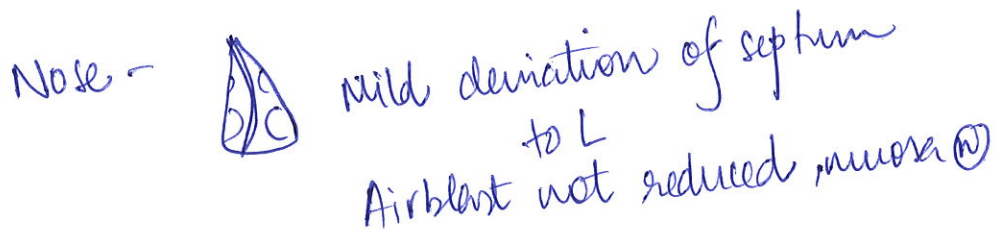 Nose - Mild deviation of septum
to L
Airblast not reduced, mucosa Ⓝ